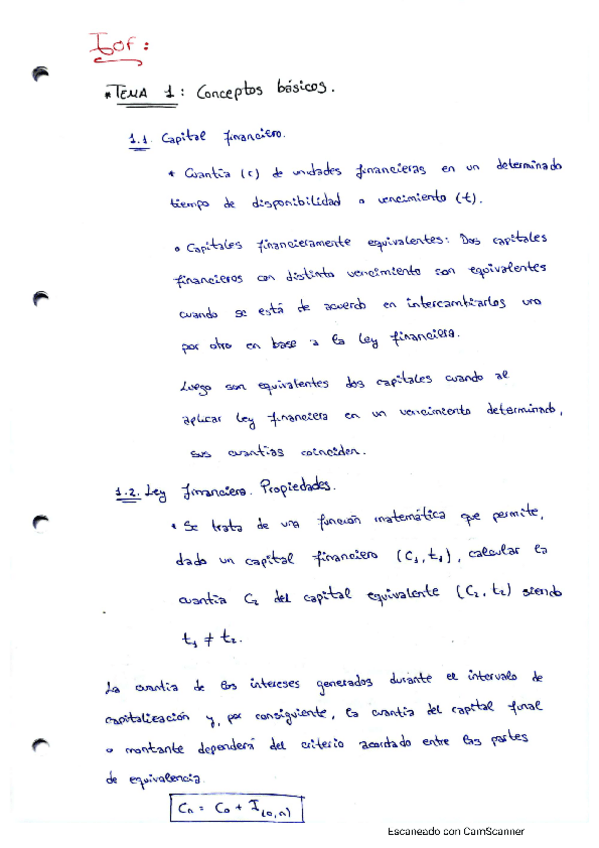 Iof:
* TEMA 1: Conceptos básicos.
1.1. Capital financiero.
* Cuantía (c) de unidades financieras en un determinado
tiempo de disponibilidad o vencimiento (t).
• Capitales financieramente equivalentes: Dos capitales
financieros con distinto vencimiento son equivalentes
cuando se está de acuerdo en intercambiarlos uno
por otro en base a la ley financiera.
Luego son equivalentes dos capitales cuando al
aplicar ley financiera en un vencimiento determinado,
sus cuantías coinciden.
1.2. Ley financiera. Propiedades.
• Se trata de una función matemática que permite,
dado un capital financiero (C₁, t₁), calcular la
cuantía C₂ del capital equivalente (C₂, t₂) siendo
t₁ ≠ t₂.
La cuantía de los intereses generados durante el intervalo de
capitalización y, por consiguiente, la cuantía del capital final
o montante dependerá del criterio acordado entre las partes
de equivalencia.
Cn = C₀ + I(0,n)
Escaneado con CamScanner